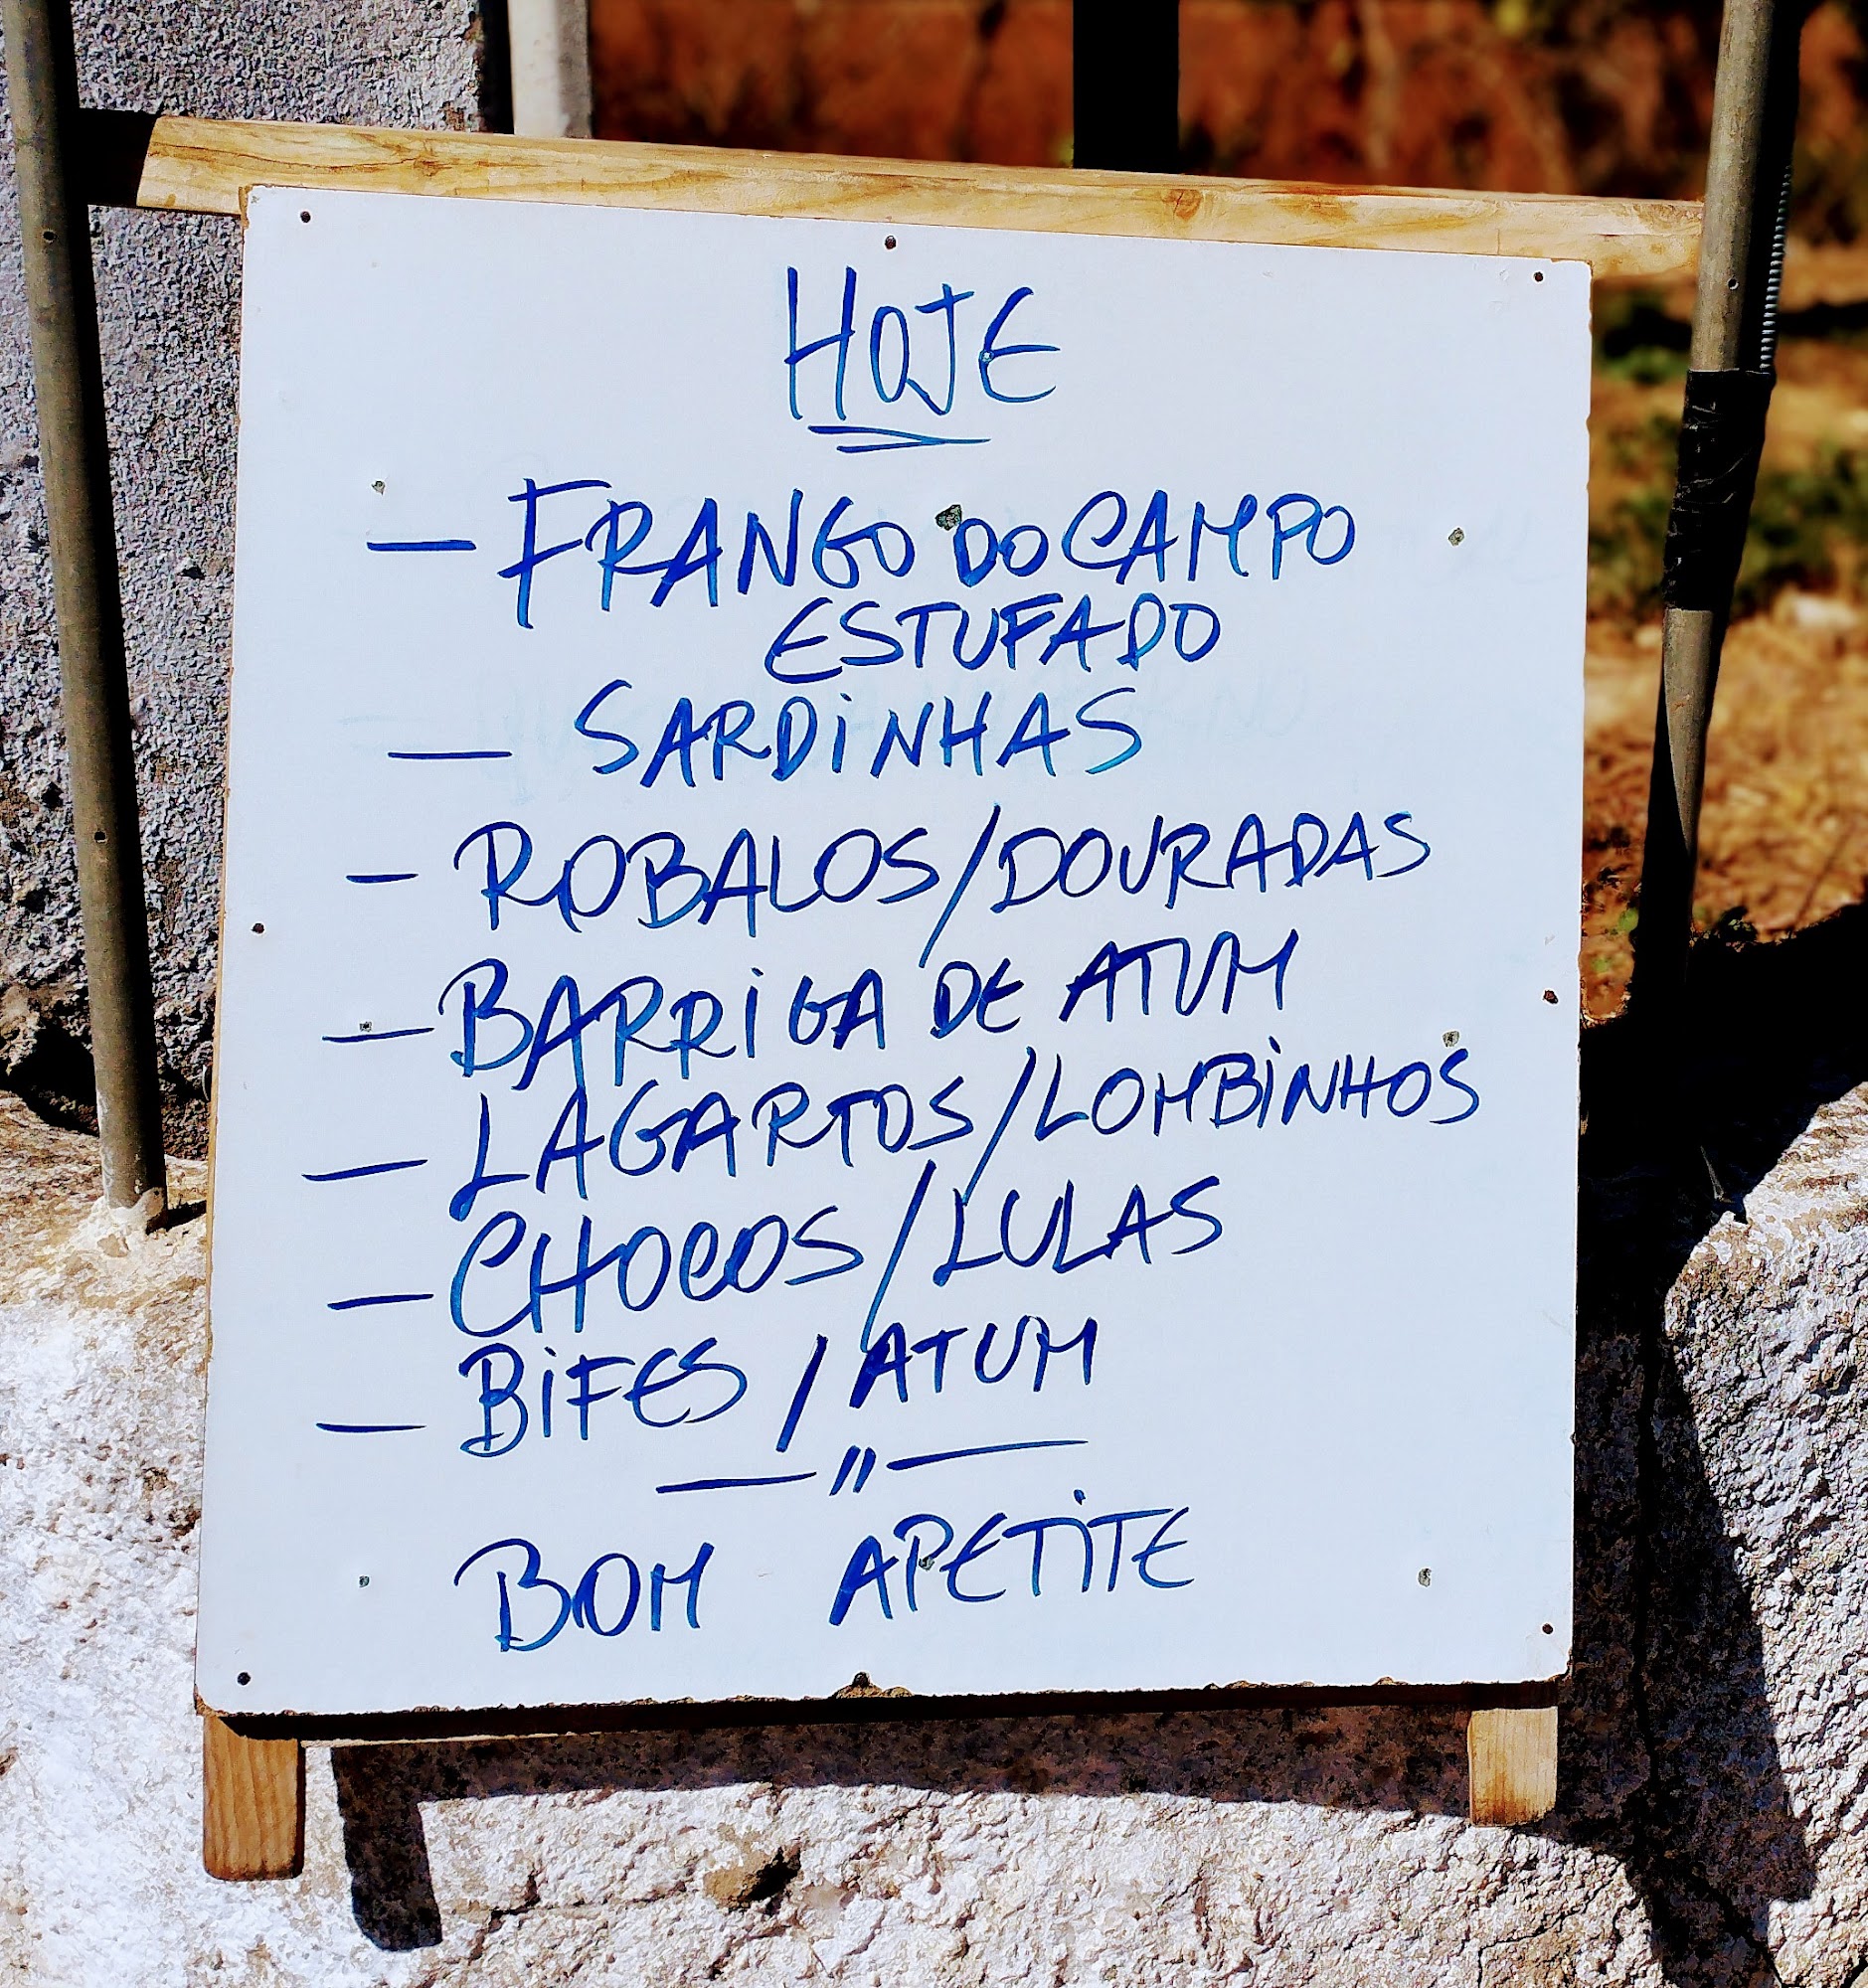 HOJE
— FRANGO DO CAMPO
ESTUFADO
— SARDiNHAS
— ROBALOS/DOURADAS
— BARRiGA DE ATUM
— LAGARTOS/LOMBiNHOS
— CHOCOS/LULAS
— BiFES/ATUM
— " —
BOM APETiTE